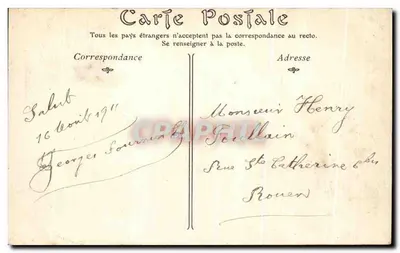 Carte Postale
Tous les pays étrangers n'acceptent pas la correspondance au recto.
Se renseigner à la poste.
Correspondance
Adresse
Salut
16 Août 1911
Georges
Monsieur Henry
Ste Catherine
Rouen
CPARAMA